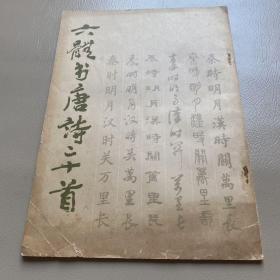 六體书唐詩二十首
秦時明月漢時關萬里長
秦時明月漢時關萬里長
秦時明月漢時關萬里長
秦時明月漢時關萬里長
秦時明月漢時关萬里長
秦时明月汉时关万里长